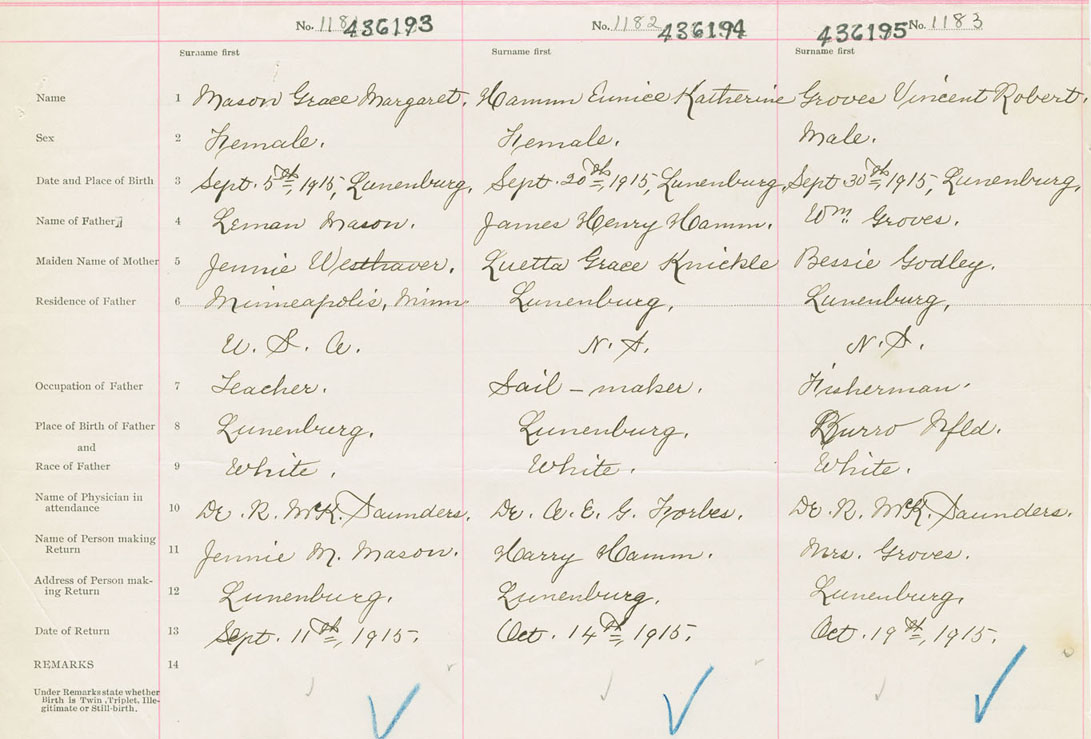 No. 1181 436193 No. 1182 436194 436195 No. 1183
Surname first Surname first Surname first
Name 1 Mason Grace Margaret. Hamm Eunice Katherine Groves Vincent Robert.
Sex 2 Female. Female. Male.
Date and Place of Birth 3 Sept. 5th, 1915, Lunenburg. Sept. 20th, 1915, Lunenburg. Sept. 30th, 1915, Lunenburg.
Name of Father 4 Leman Mason. James Henry Hamm. Wm Groves.
Maiden Name of Mother 5 Jennie Westhaver. Luetta Grace Knickle Bessie Godley.
Residence of Father 6 Minneapolis, Minn Lunenburg, Lunenburg,
U. S. A. N. S. N. S.
Occupation of Father 7 Teacher. Sail - maker. Fisherman.
Place of Birth of Father 8 Lunenburg. Lunenburg. Burro Nfld.
and
Race of Father 9 White. White. White.
Name of Physician in
attendance 10 Dr. R. McK. Saunders. Dr. A. E. G. Forbes. Dr. R. McK. Saunders.
Name of Person making
Return 11 Jennie M. Mason. Harry Hamm. Mrs. Groves.
Address of Person mak-
ing Return 12 Lunenburg. Lunenburg. Lunenburg.
Date of Return 13 Sept. 11th, 1915. Oct. 14th, 1915. Oct. 19th, 1915.
REMARKS 14
Under Remarks state whether
Birth is Twin, Triplet, Ille-
gitimate or Still-birth.